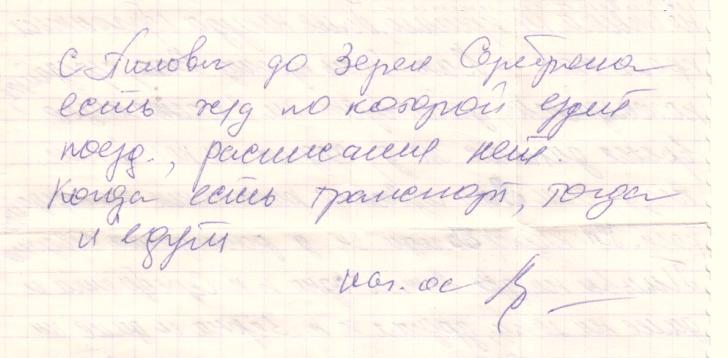 до Зерен
есть ж/д по которой едит
поезд., расписания нет.
Когда есть транспорт, тогда
и едут
нач. ос